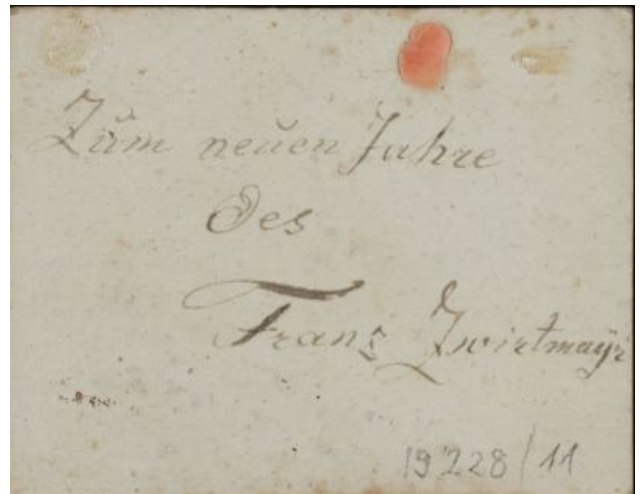 Zŭm neŭen Jahre
Des
Franz Zwirtmaÿr
19228/11